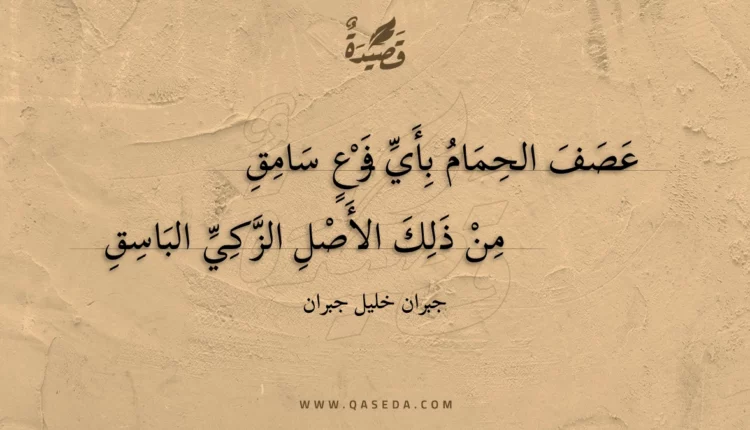 قَصِيْدَةٌ
عَصَفَ الحِمَامُ بِأَيِّ فَرْعٍ سَامِقِ
مِنْ ذَلِكَ الأَصْلِ الزَّكِيِّ البَاسِقِ
جبران خليل جبران
WWW.QASEDA.COM